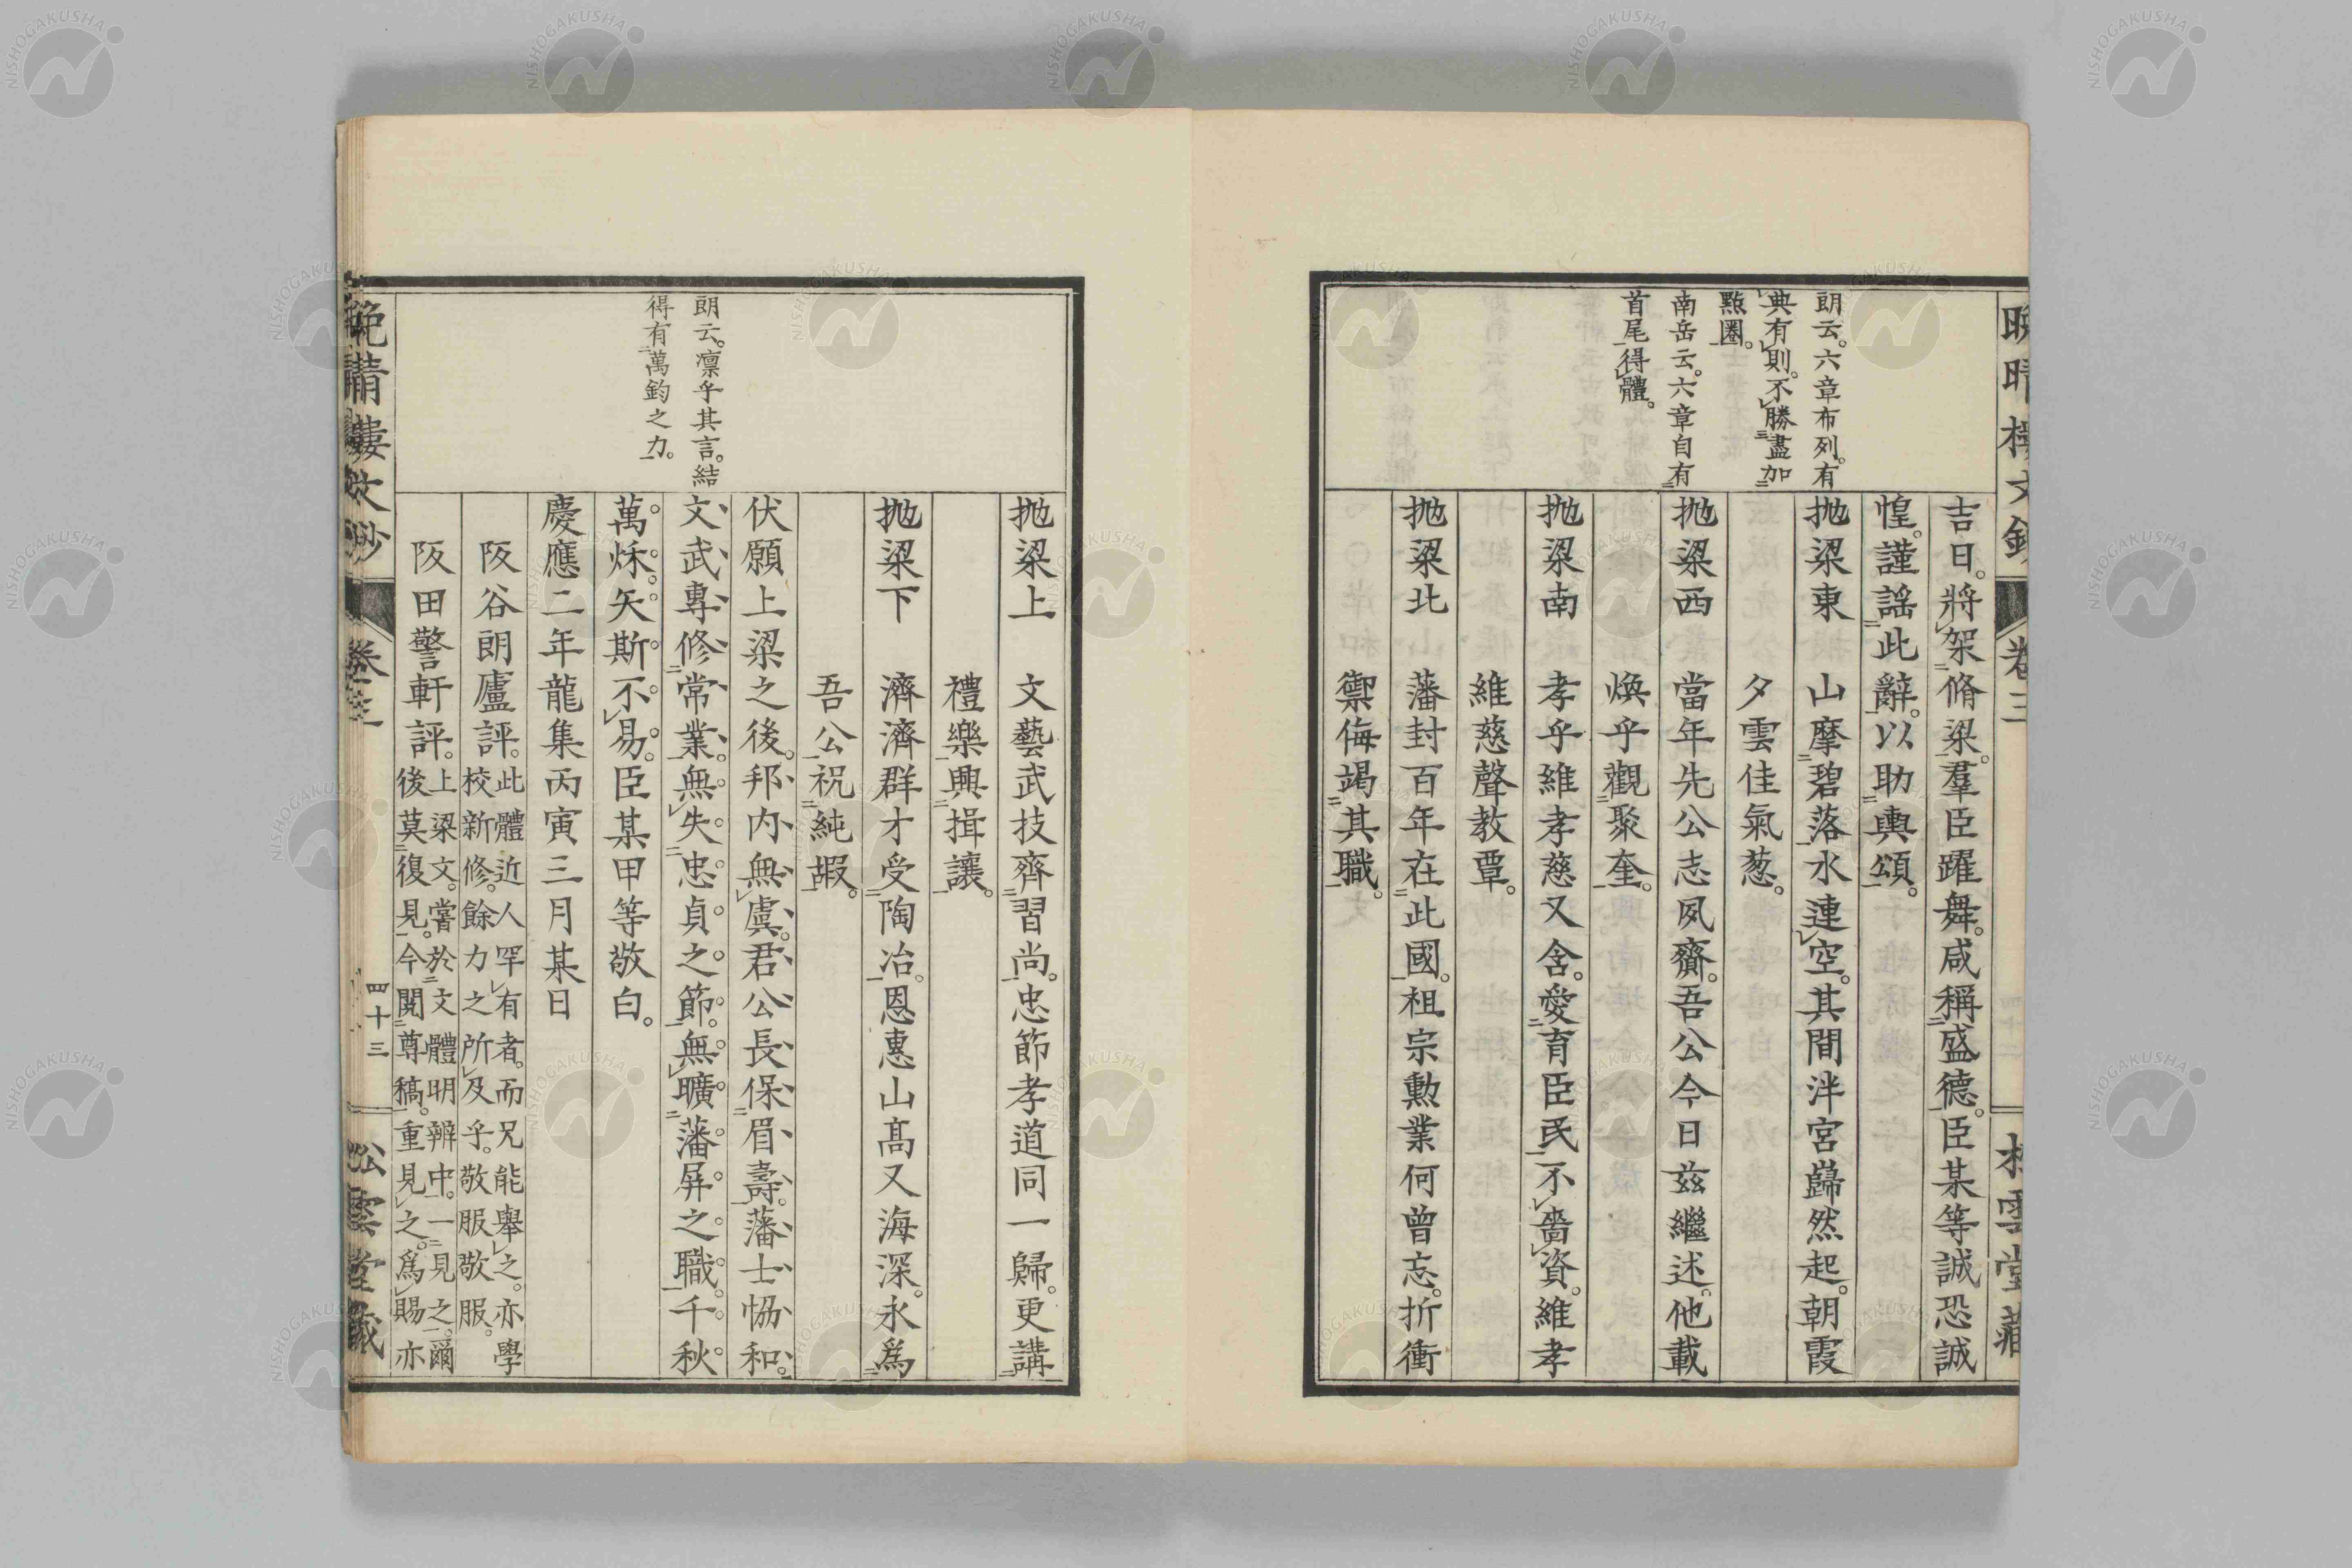 晩晴樓文鈔
卷三
松雲堂藏
朗云。六章布列。有
典有則。不勝盡加
㸃圈。
南岳云。六章自有
首尾得體。
吉日。將架脩梁。羣臣躍舞。咸稱盛德。臣某等誠恐誠
惶。謹謡此辭。以助輿頌。
抛梁東 山摩碧落水連空。其間泮宮巋然起。朝霞
夕雲佳氣葱。
抛梁西 當年先公志夙齎。吾公今日兹繼述。他載
煥乎觀聚奎。
抛梁南 孝乎維孝慈又含。愛育臣民不嗇資。維孝
維慈聲教覃。
抛梁北 藩封百年在此國。祖宗勲業何曾忘。折衝
禦侮竭其職。
抛梁上 文藝武技齊習尚。忠節孝道同一歸。更講
禮樂興揖讓。
抛梁下 濟濟群才受陶冶。恩惠山髙又海深。永爲
吾公祝純嘏。
朗云。凛乎其言。結
得有萬鈞之力。
伏願上梁之後。邦内無虞。君公長保眉壽。藩士恊和。
文武專修常業。無失忠貞之節。無曠藩屏之職。千秋
萬秌。矢斯不易。臣某甲等敬白。
慶應二年龍集丙寅三月某日
阪谷朗廬評。此體近人罕有者。而兄能舉之。亦學
校新修。餘力之所及乎。敬服敬服。
阪田警軒評。上梁文。嘗於文體明辨中。一見之。爾
後莫復見。今閲尊稿。重見之。爲賜亦
晩晴樓文鈔
卷三
四十三
松雲堂藏